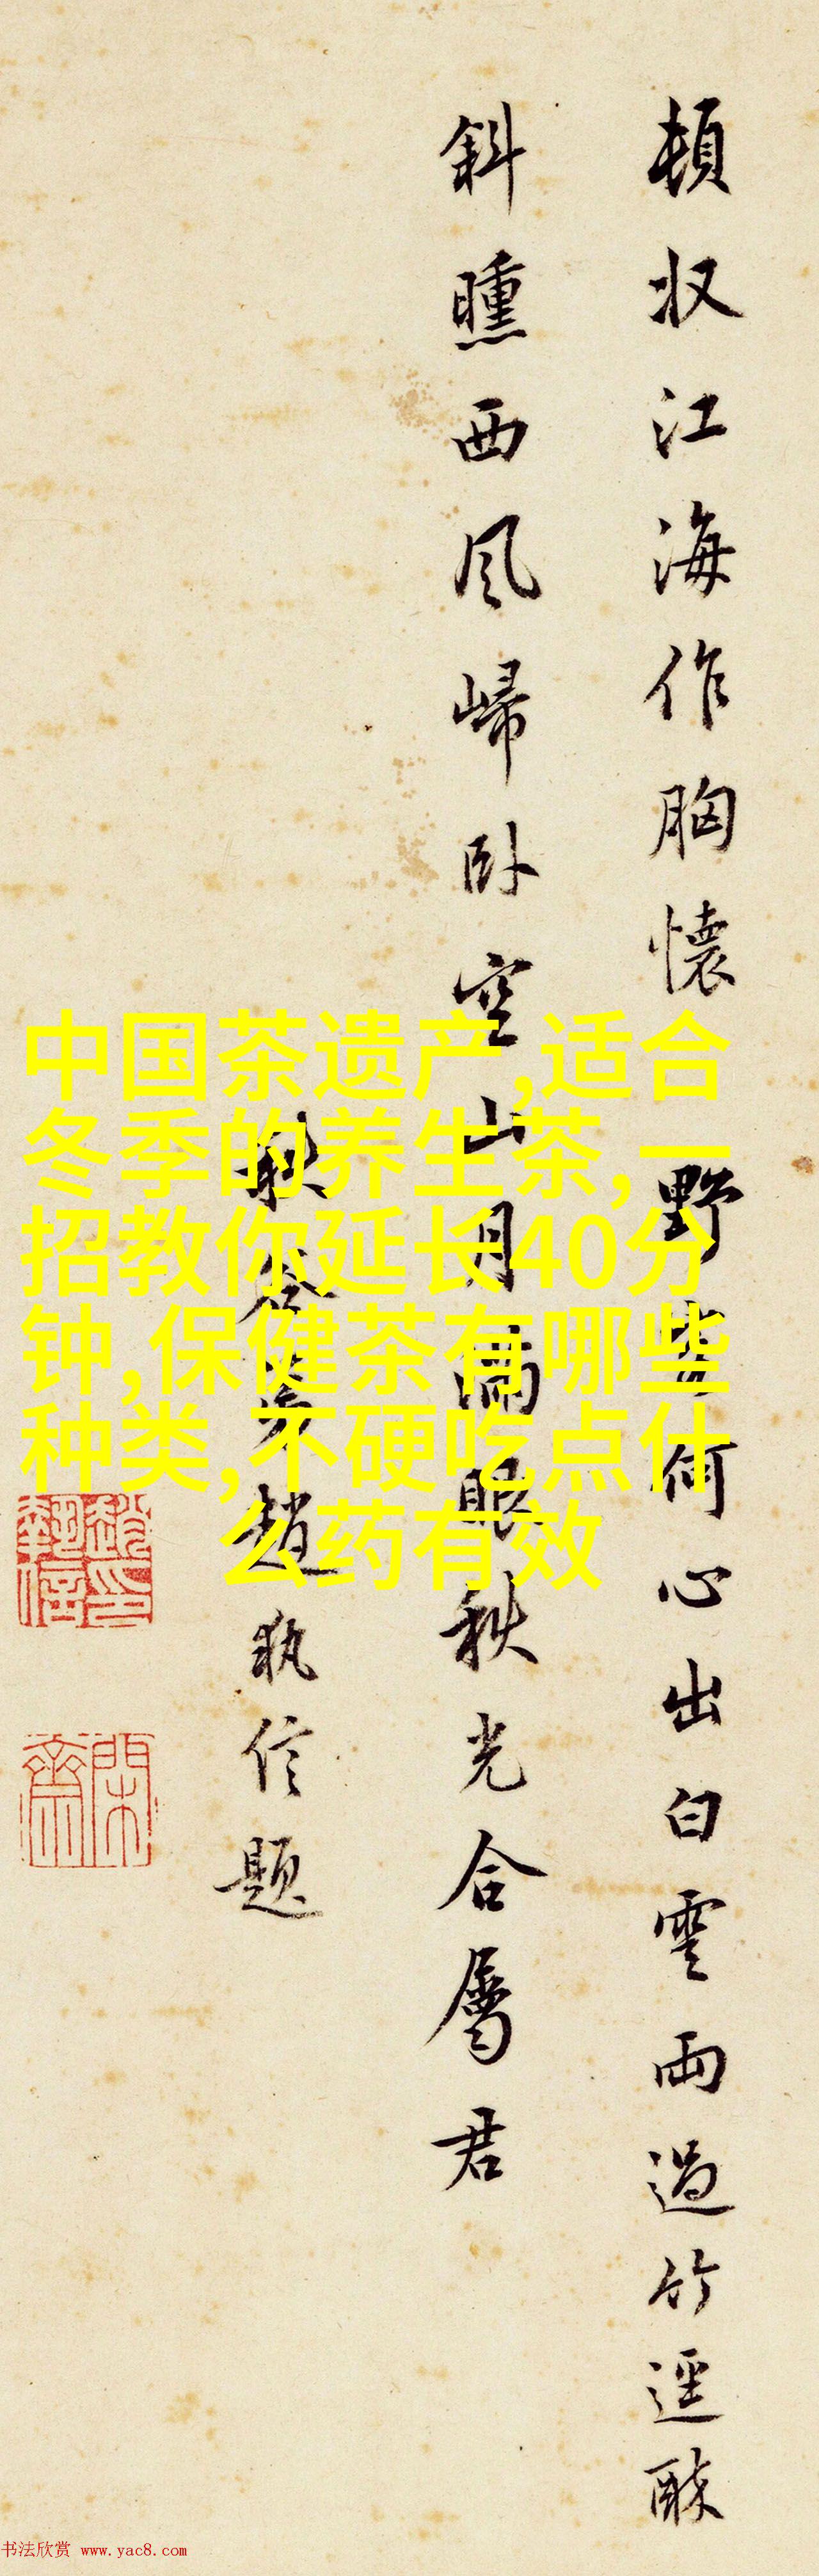 頓収江海作胸懷野何心出白雲雨過竹逕
斜曛西风歸卧空山月滿眼秋光合屬君
秋谷趙执信题
趙執信印
閑齋
中国茶遗产,适合
冬季的养生茶,一
招教你延长40分
钟,保健茶有哪些
种类,不硬吃点什
么药有效
书法欣赏 www.yac8.com